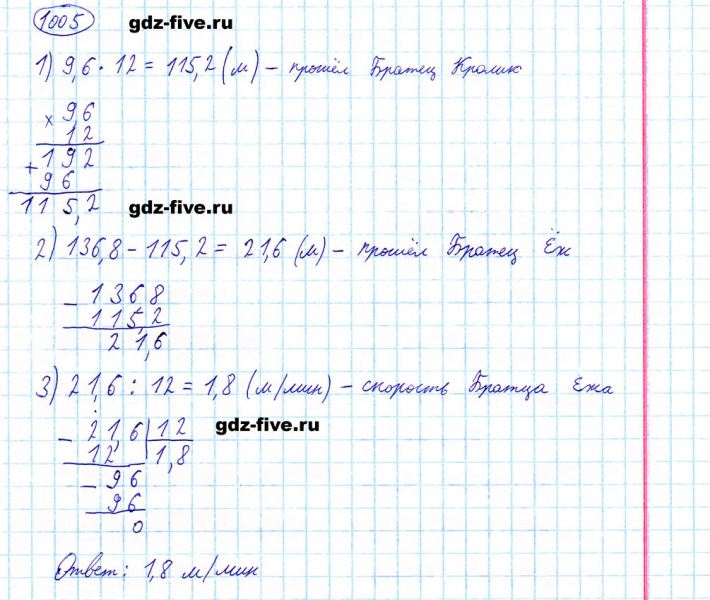 1005 gdz-five.ru
1) 9,6 · 12 = 115,2 (м) – прошёл Братец Кролик
× 9,6
1 2
+ 1 9 2
9 6
1 1 5,2 gdz-five.ru
2) 136,8 – 115,2 = 21,6 (м) – прошёл Братец Ёж
– 1 3 6 8
1 1 5,2
2 1,6
3) 21,6 : 12 = 1,8 (м/мин) – скорость Братца Ежа
– 2 1,6 | 1 2 gdz-five.ru
1 2 1,8
– 9 6
9 6
0
Ответ: 1,8 м/мин